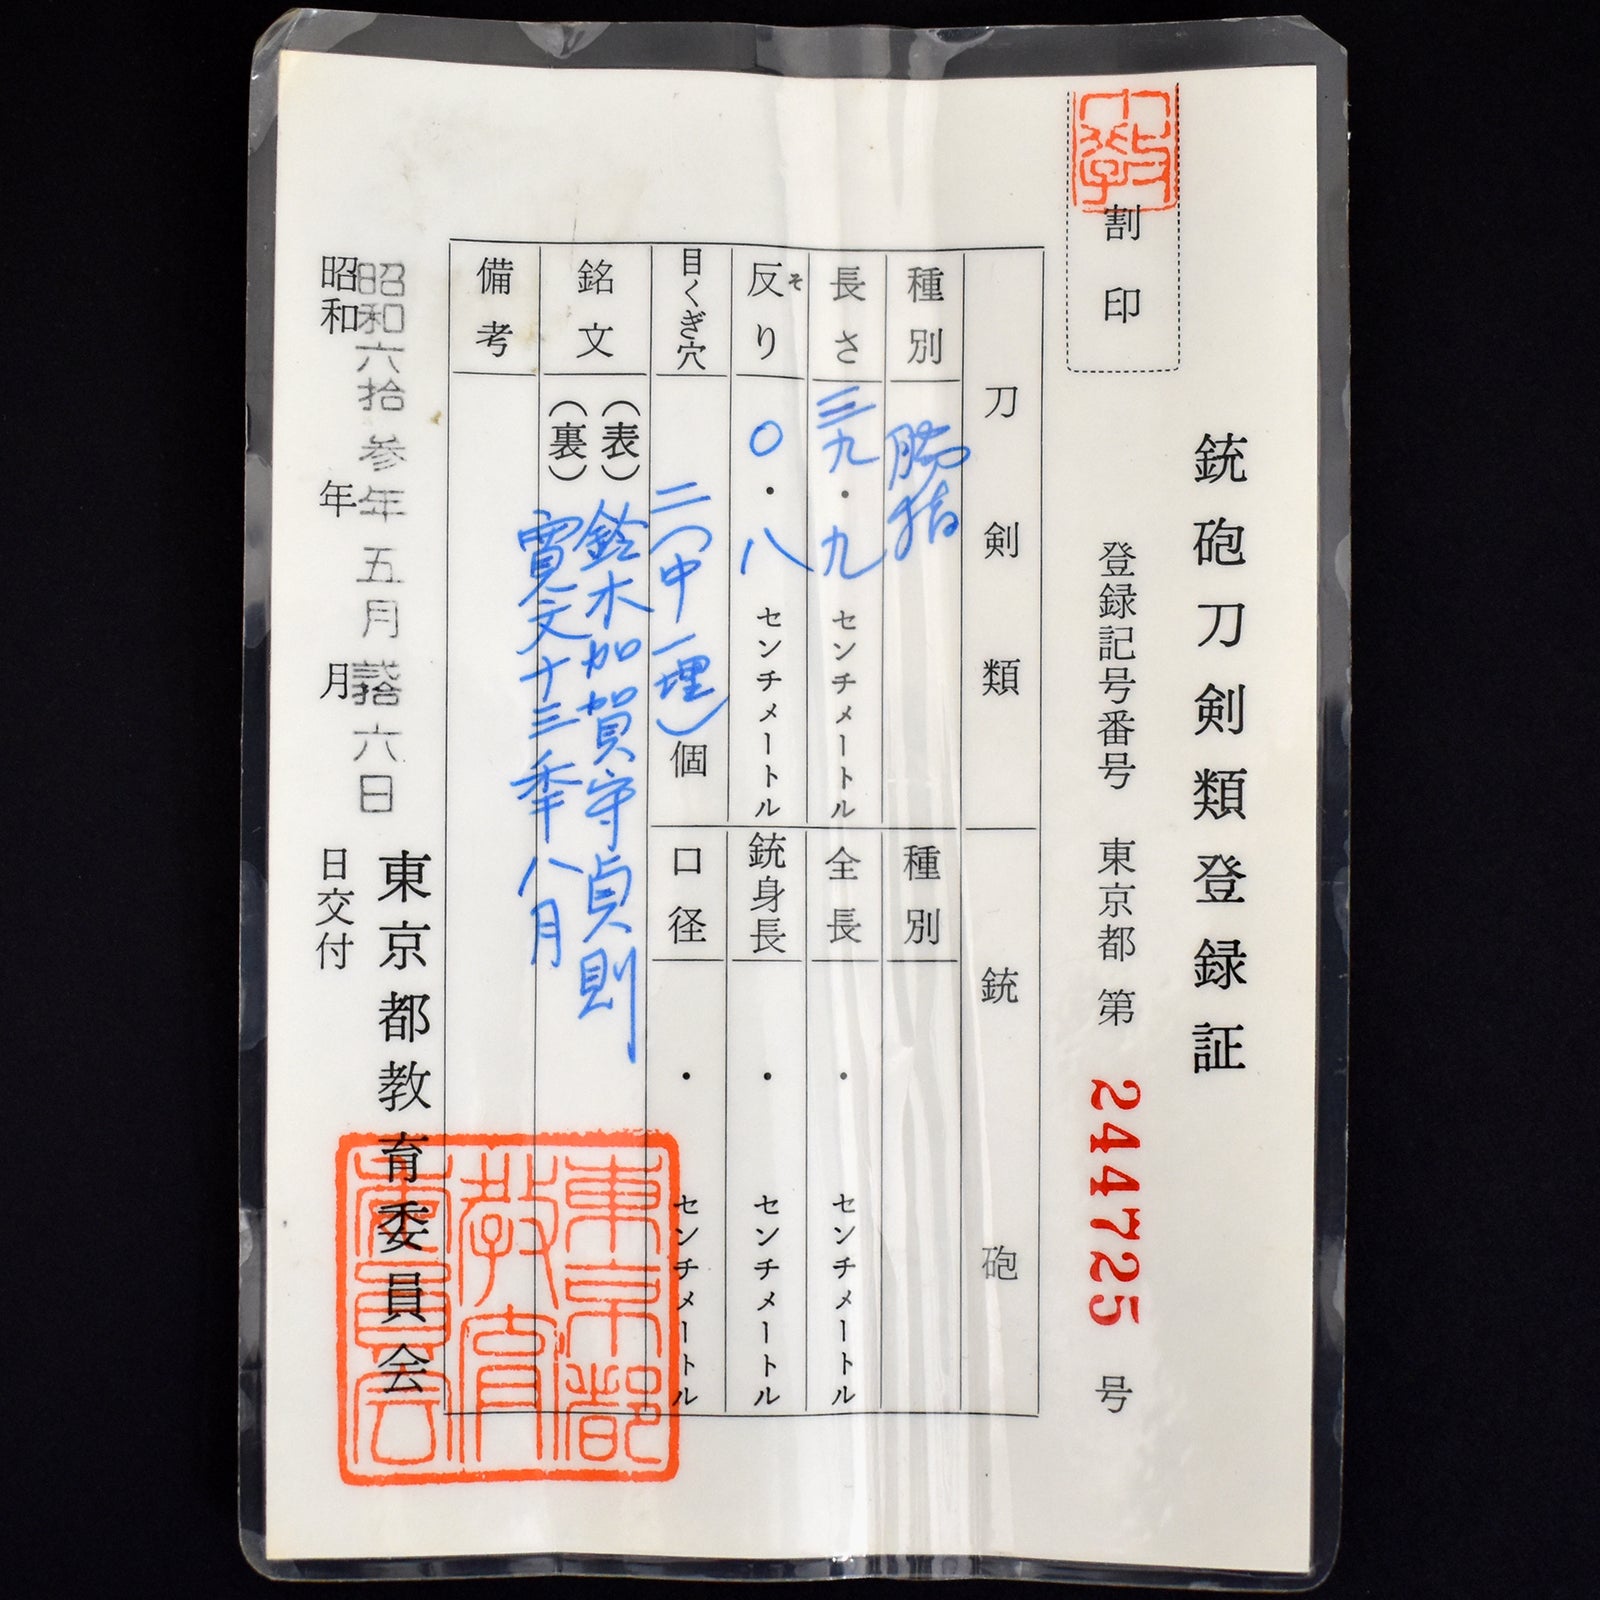 銃砲刀剣類登録証
割印
登録記号番号 東京都 第 244725 号
刀剣類
種別 脇指
長さ 三九・九 センチメートル
反り そ 〇・八 センチメートル
目くぎ穴 二(中一埋)個
銘文
(表) 鈴木加賀守貞則
(裏) 寛文十三年八月
備考
銃砲
種別
全長 ・ センチメートル
銃身長 ・ センチメートル
口径 ・ センチメートル
昭和六拾参年五月弐拾六日
昭和 年 月 日交付
東京都教育委員会
東京都教育委員会